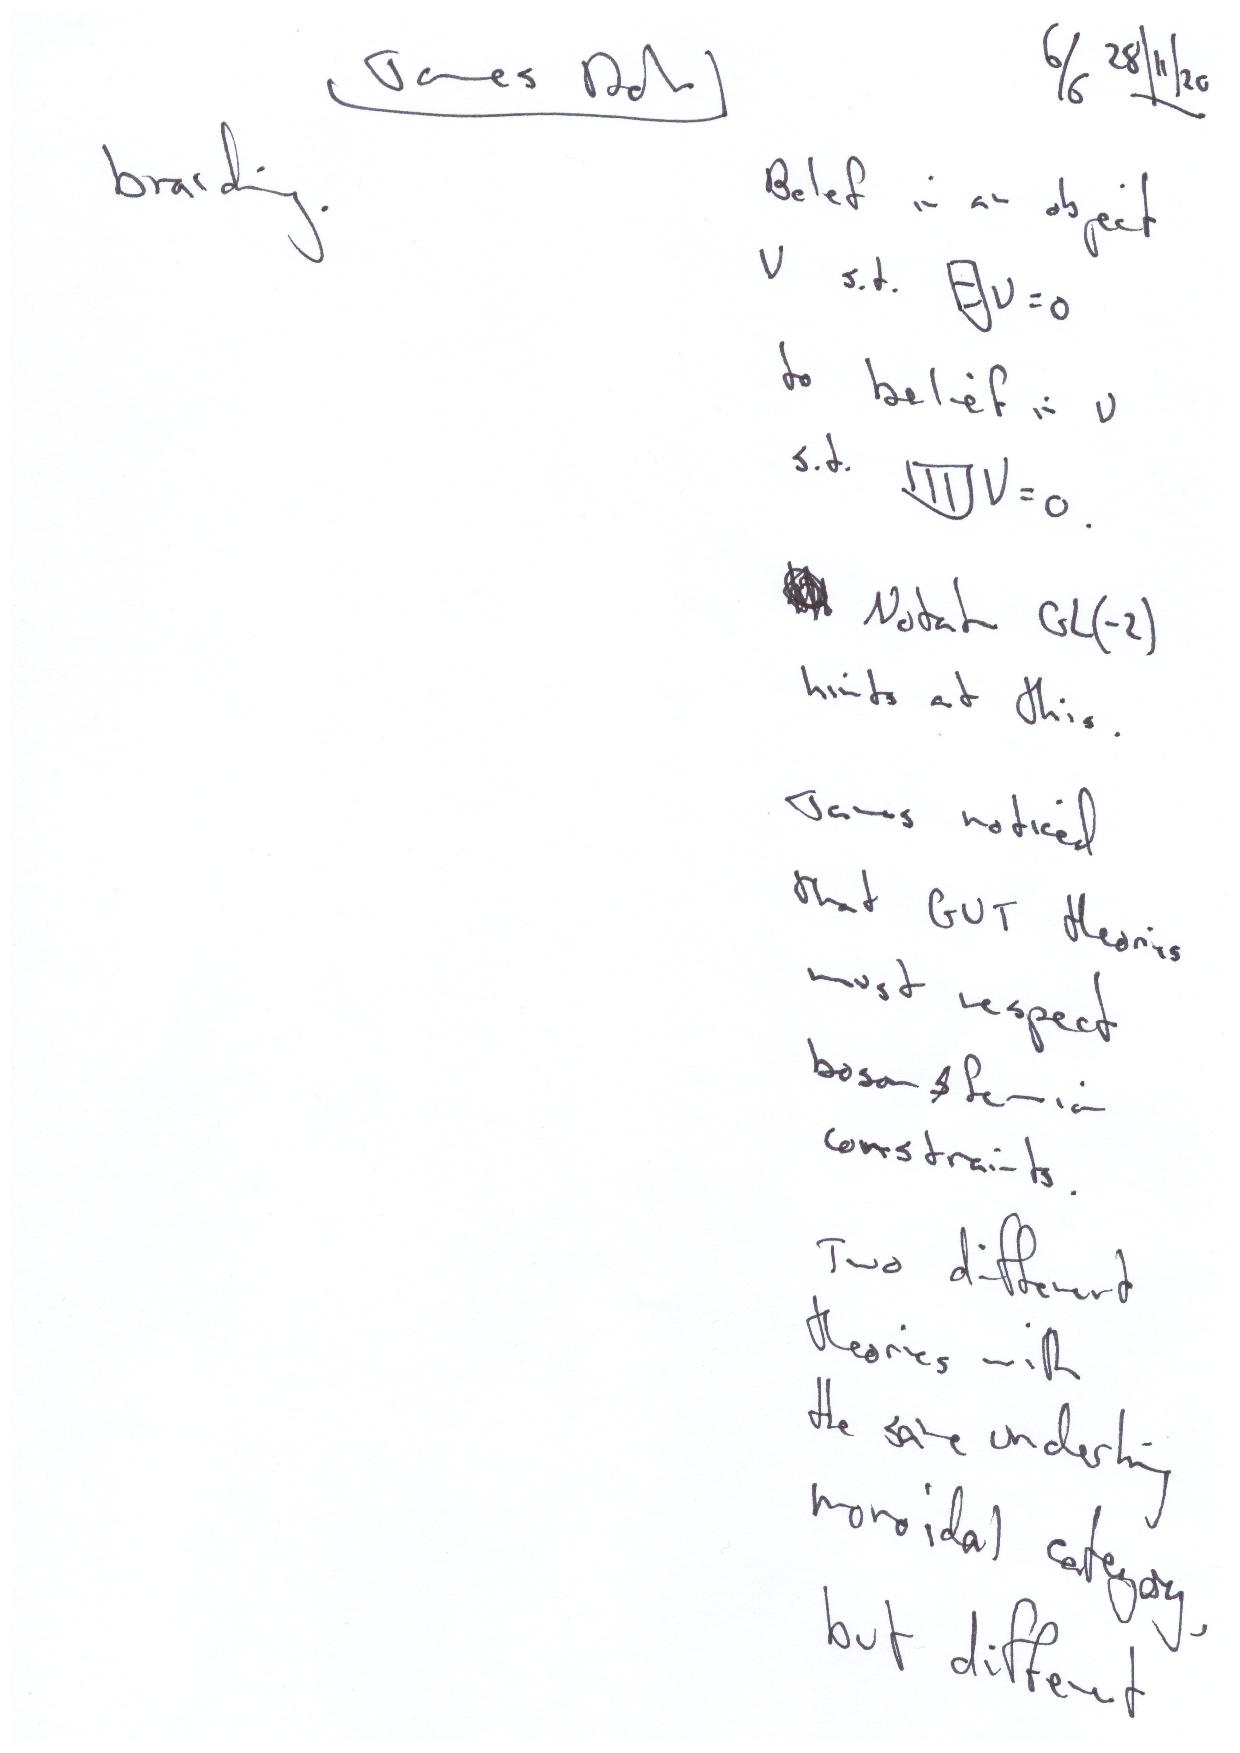 James Dol
6/6 28/11/20
Belief in an object
V s.t. V = 0
to belief in V
s.t. V = 0.
Notat GL(-2)
hints at this.
James noticed
that GUT theories
must respect
boson & fermion
constraints.
Two different
theories with
the same underling
monoidal category,
but different
braiding.